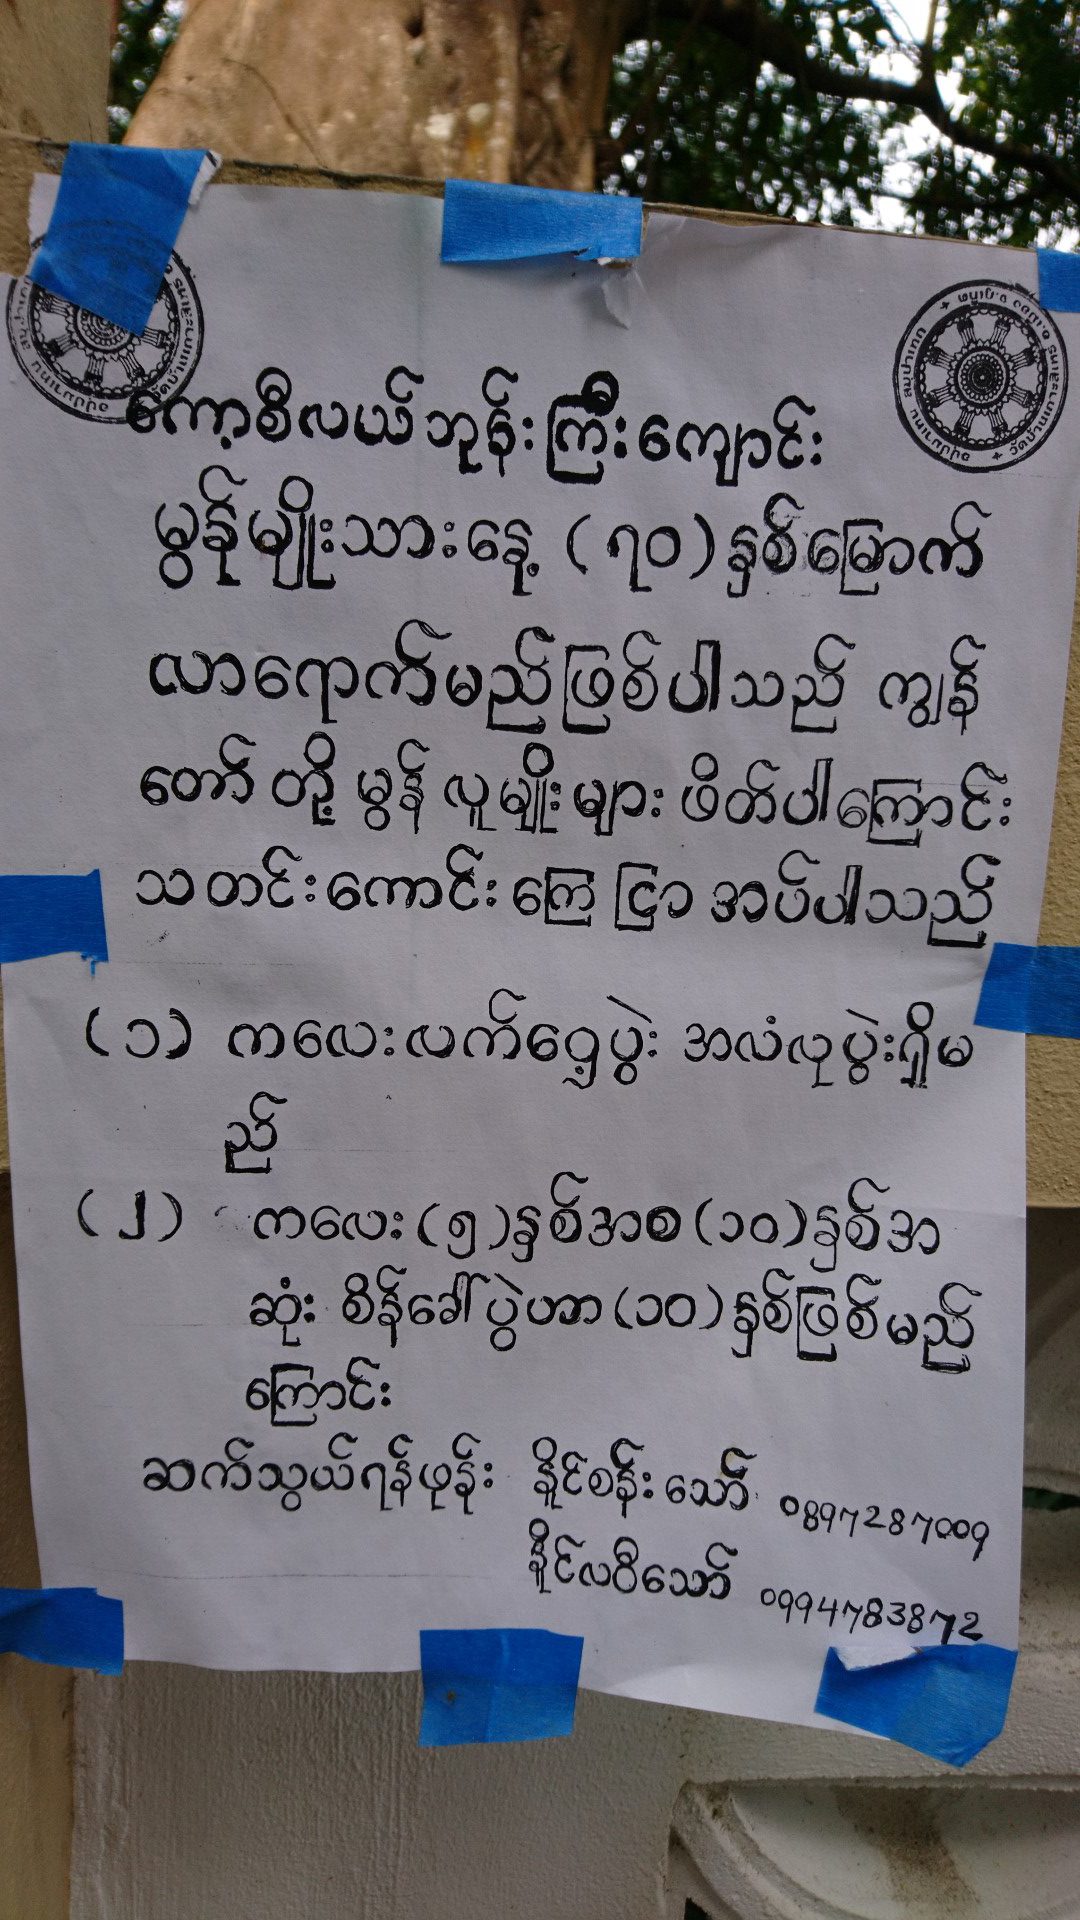 ကော့စီလယ်ဘုန်းကြီးကျောင်း
မွန်မျိုးသားနေ့ (၇၀) နှစ်မြောက်
လာရောက်မည်ဖြစ်ပါသည် ကျွန်
တော် တို့ မွန် လူမျိုးများ ဖိတ်ပါကြောင်း
သတင်းကောင်း ကြေ ငြာ အပ်ပါသည်
(၁) ကလေးလက်ဝှေ့ပွဲး အလံလုပွဲးရှိမ
ည်
(၂) ကလေး (၅) နှစ်အစ (၁၀) နှစ်အ
ဆုံး စိန်ခေါ်ပွဲဟာ (၁၀) နှစ်ဖြစ်မည်
ကြောင်း
ဆက်သွယ်ရန်ဖုန်း နိူင်စန်းသော် 0897287009
နိူင်လဝီသော် 0994783872